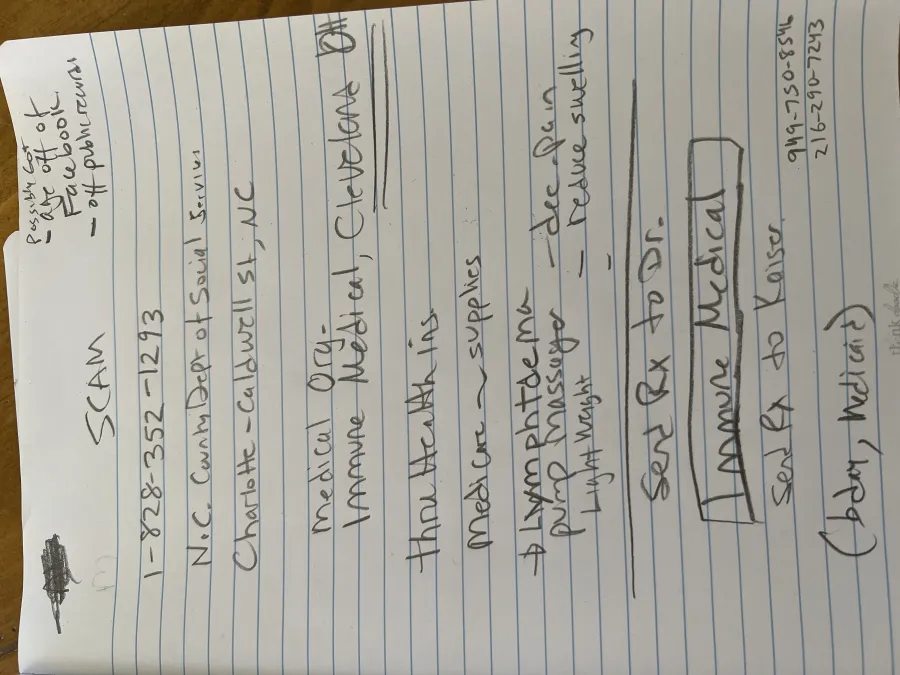 SCAM
Possibly got
- age off of
Facebook
- off public records
1-828-352-1293
N.C. County Dept of Social Services
Charlotte - Caldwell St, NC
Medical Org-
Immune Medical, Cleveland OH
thru Health ins.
Medicare ~ supplies
→ Lymphtdema
pump massager - dec. pain
Light weight - reduce swelling
-
Send Rx to Dr.
Immune Medical
Send Rx to Kaiser.
949-750-8546
216-290-7243
(bday, Medicaid)